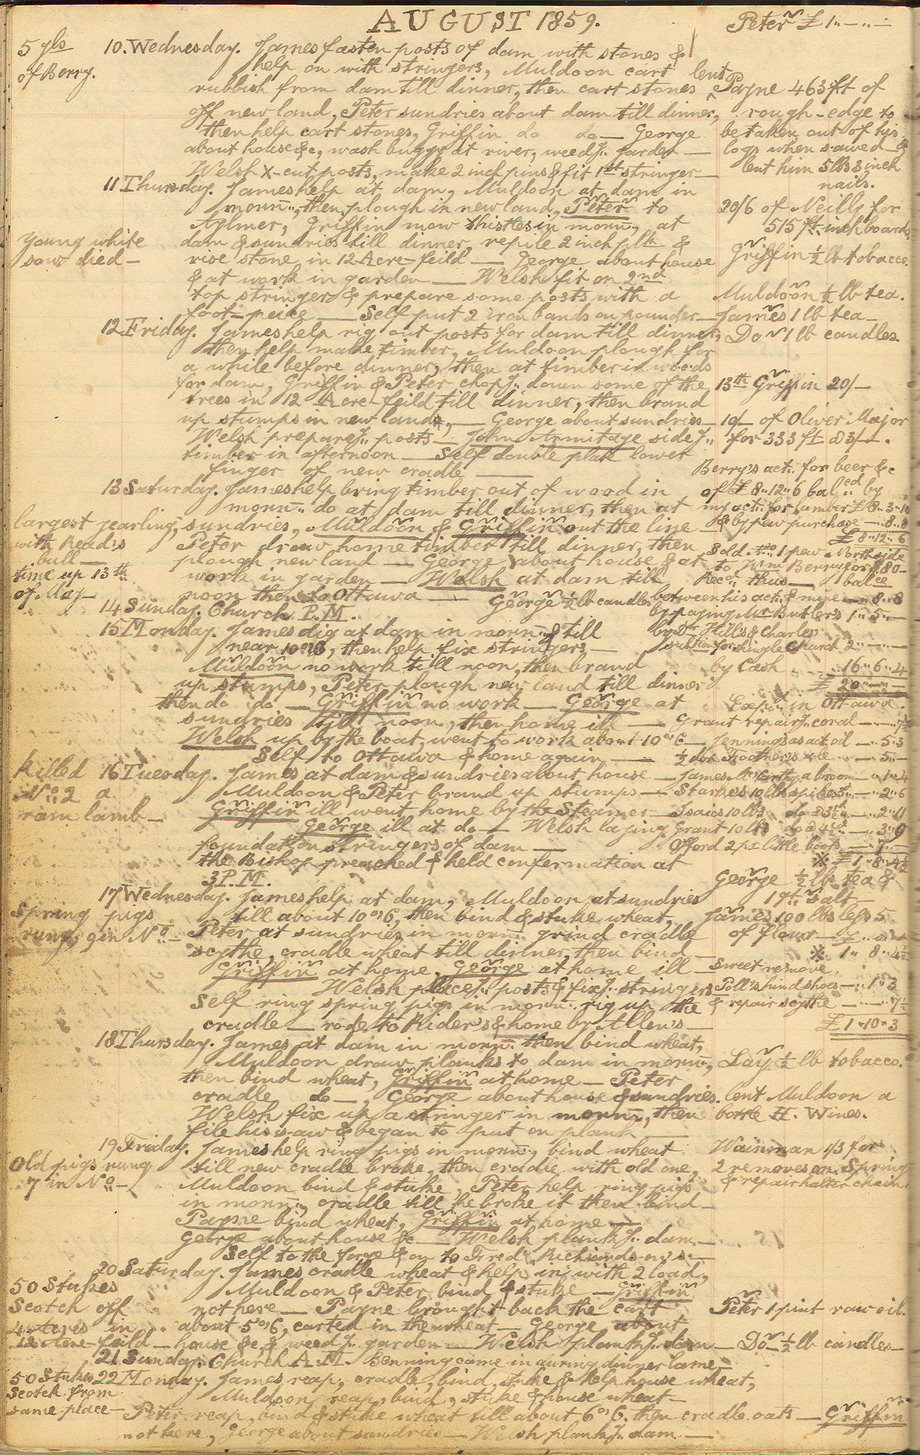 AUGUST 1859.
Peter £ 1..-..-
5 gls
of Berry.
10. Wednesday. James fasten posts of dam with stones &
help on with stringers, Muldoon cart
rubbish from dam till dinner, then cart stones
off new land, Peter sundries about dam till dinner,
then help cart stones, Griffin do do — George
about house &c, wash buggy at river, weedg. garden —
Welsh X-cut posts, make 2 inch pins & fit 1st stringer —
lent Payne 463 ft of
rough-edge to
be taken out of his
logs when sawed &
lent him 5 lbs 3 inch
nails.
11 Thursday. James help at dam, Muldoon at dam in
mornn., then plough in new land, Peter to
Aylmer, Griffin mow thistles in mornn, at
dam & sundries till dinner, repile 2 inch plk &
rise stone, in 12 Acre-feild — George about house
& at work in garden — Welsh fit on 2nd
top stringer & prepare some posts with a
foot-peice — Self put 2 iron bands on pounder —
young white
sow died —
20/6 of Neill for
515 ft inch boards
Griffin ½ lb tobacco.
Muldoon ½ lb tea.
James 1 lb tea —
Do 1 lb candles.
12 Friday. James help rig out posts for dam till dinner,
then help make timber, Muldoon plough for
a while before dinner, then at timber in woods
for dam, Griffin & Peter chopg. down some of the
trees in 12 Acre-feild till dinner, then brand
up stumps in new land, — George about sundries —
Welsh prepareg. posts — John Armitage sideg.
timber in afternoon — Self double plat lower
finger of new cradle —
13th Griffin 20/-
10/- of Oliver Major
for 333 ft @ 3/-.
13 Saturday. James help bring timber out of wood in
mornn. do at dam till dinner, then at
sundries, Muldoon & Griffin out the line
Peter draw home timber till dinner, then
plough new land — George about house & at
work in garden — Welsh at dam till
noon then to Ottawa —
George ½ lb candles
largest yearling
with head is
bull —
time up 13th
of May —
Berry's act. for beer &c
of £ 8..12..6 balced by
my act. for lumber £ 8..3..10
& by paw purchase — ..8..8
£ 8..12..6
14 Sunday. Church P.M.
15 Monday. James dig at dam in mornn & till
near 10 o'6, then help fix stringers —
Muldoon no work till noon, then brand
up stumps, Peter plough new land till dinner
then do do — Griffin no work — George at
sundries till noon, then home ill —
Welsh up by the boat, went to work about 10 o'6 —
Self to Ottawa & home again —
by Cash .. 16..6..4
£ 20
Exps. in Ottawa.
Grant repairg. coral
Jennings as act. oil — .. 5..3
16 Tuesday. James at dam & sundries about house —
Muldoon & Peter brand up stumps —
Griffin ill went home by the Steamer —
George ill at do — Welsh laying
foundation stringers of dam —
the Bishop preached & held confermation at
3 P.M.
killed
No. 2 a
ram lamb —
James McCarthy a broom — .. 1..4
Starkes 10 lbs spikes 3.. — .. 2..6
Isaics 10 lbs
Grant 10 lbs
Offord 2 pr little boots
* £ 1..8..4½
George ½ lb tea &
17 Wednesday. James help at dam, Muldoon at sundries
till about 10 o'6, then bind & stuke wheat,
Peter at sundries in mornn. grind cradle
scythe, cradle wheat till dinner, then bind —
Griffin at home, George at home ill —
Welsh placeg. posts & fixg. stringers
Self ring spring pigs in mornn. rig up the
cradle — rode to Rider's & home by Allen's —
Spring pigs
rung, 9 in No.
James 100 lbs less 5
of flour
* 1..8..4½
Sweet remove
Poll's hind shoes — .. 1..3
& repair scythe
£ 1..10..3
18 Thursday. James at dam in mornn then bind wheat,
Muldoon draw planks to dam in mornn,
then bind wheat, Griffin at home — Peter
cradle do —, George about house & sundries.
Welsh fix up a stringer in mornn, then
file his saw & began to put on plank —
Lay ½ lb tobacco.
lent Muldoon a
bottle H. Wines.
19 Friday. James help ring pigs in mornn, bind wheat
till new cradle broke, then cradle with old one,
Muldoon bind & stuke, Peter help ring pigs
in mornn, cradle till he broke it then bind —
Payne bind wheat, Griffin at home —
George about house &c — Welsh plankg. dam —
Self to the forge & on to Fred Richards
Old pigs rung
7 in No —
Wainman 1/3 for
2 removes on Spring
& repair halter chain
20 Saturday. James cradle wheat & help in with 2 load,
Muldoon & Peter bind & stuke — Griffin
not here — Payne brought back the cart
about 5 o'6, carted in the wheat — George about
house &c & weedg. garden — Welsh plankg. dam —
50 Stukes
Scotch off
4 Acres in
12 Acre-feild —
Peter 1 pint raw oil.
Do ½ lb candles —
21 Sunday. Church A.M. Benning came in during dinner lame —
50 Stukes
Scotch from
same place —
22 Monday. James reap, cradle, bind, stuke & help house wheat,
Muldoon reap, bind, stuke & house wheat —
Peter reap, bind & stuke wheat till about 6 o'6, then cradle oats — Griffin
not here, George about sundries — Welsh plankg. dam —